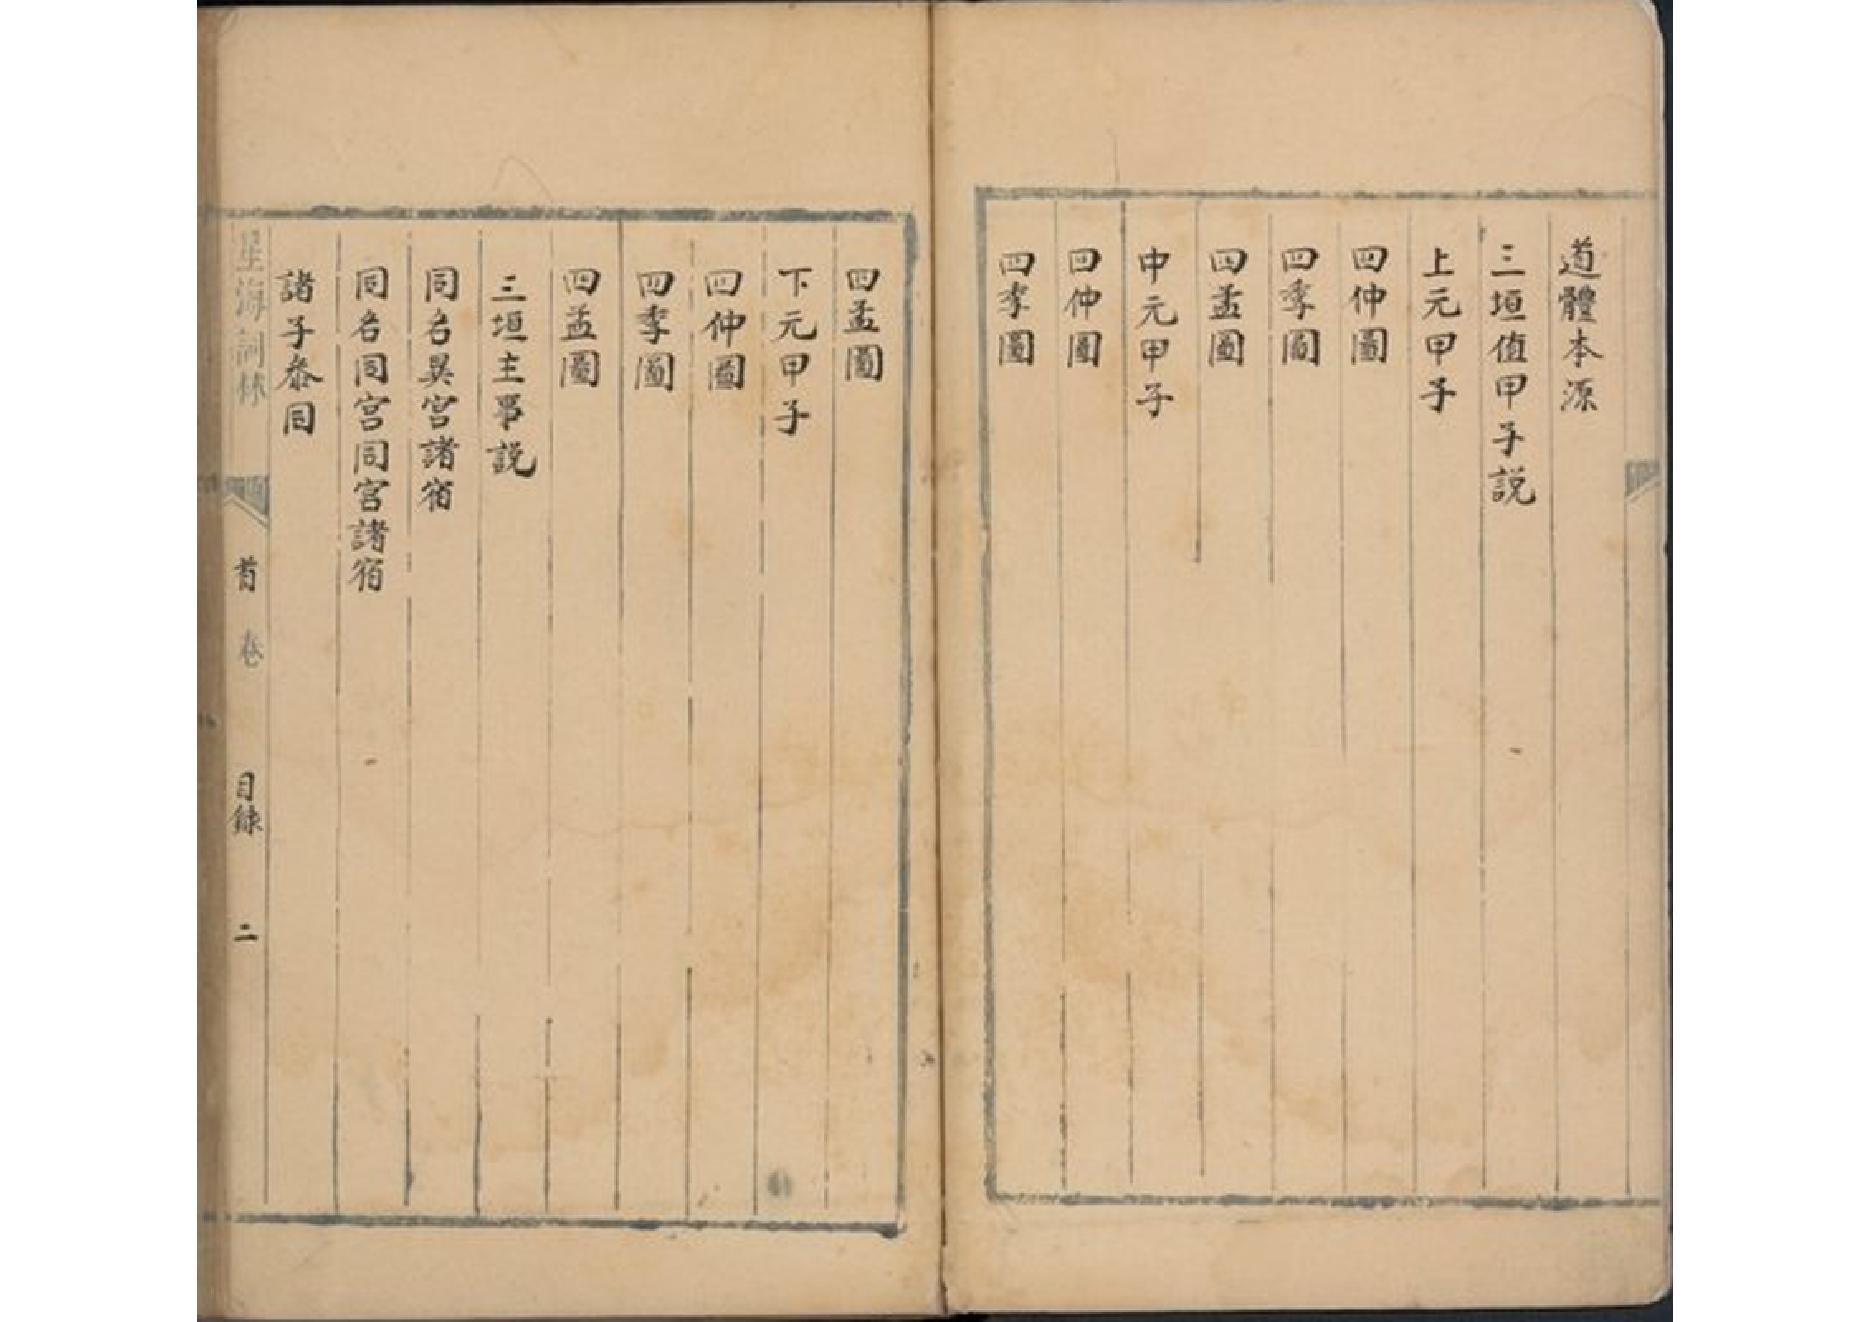 道體本源
三垣值甲子説
上元甲子
四仲圖
四季圖
四孟圖
中元甲子
四仲圖
四季圖
四孟圖
下元甲子
四仲圖
四季圖
四孟圖
三垣主事説
同名異宮諸宿
同名同宮同宮諸宿
諸子叅同
星海詞林
首卷
目録
二